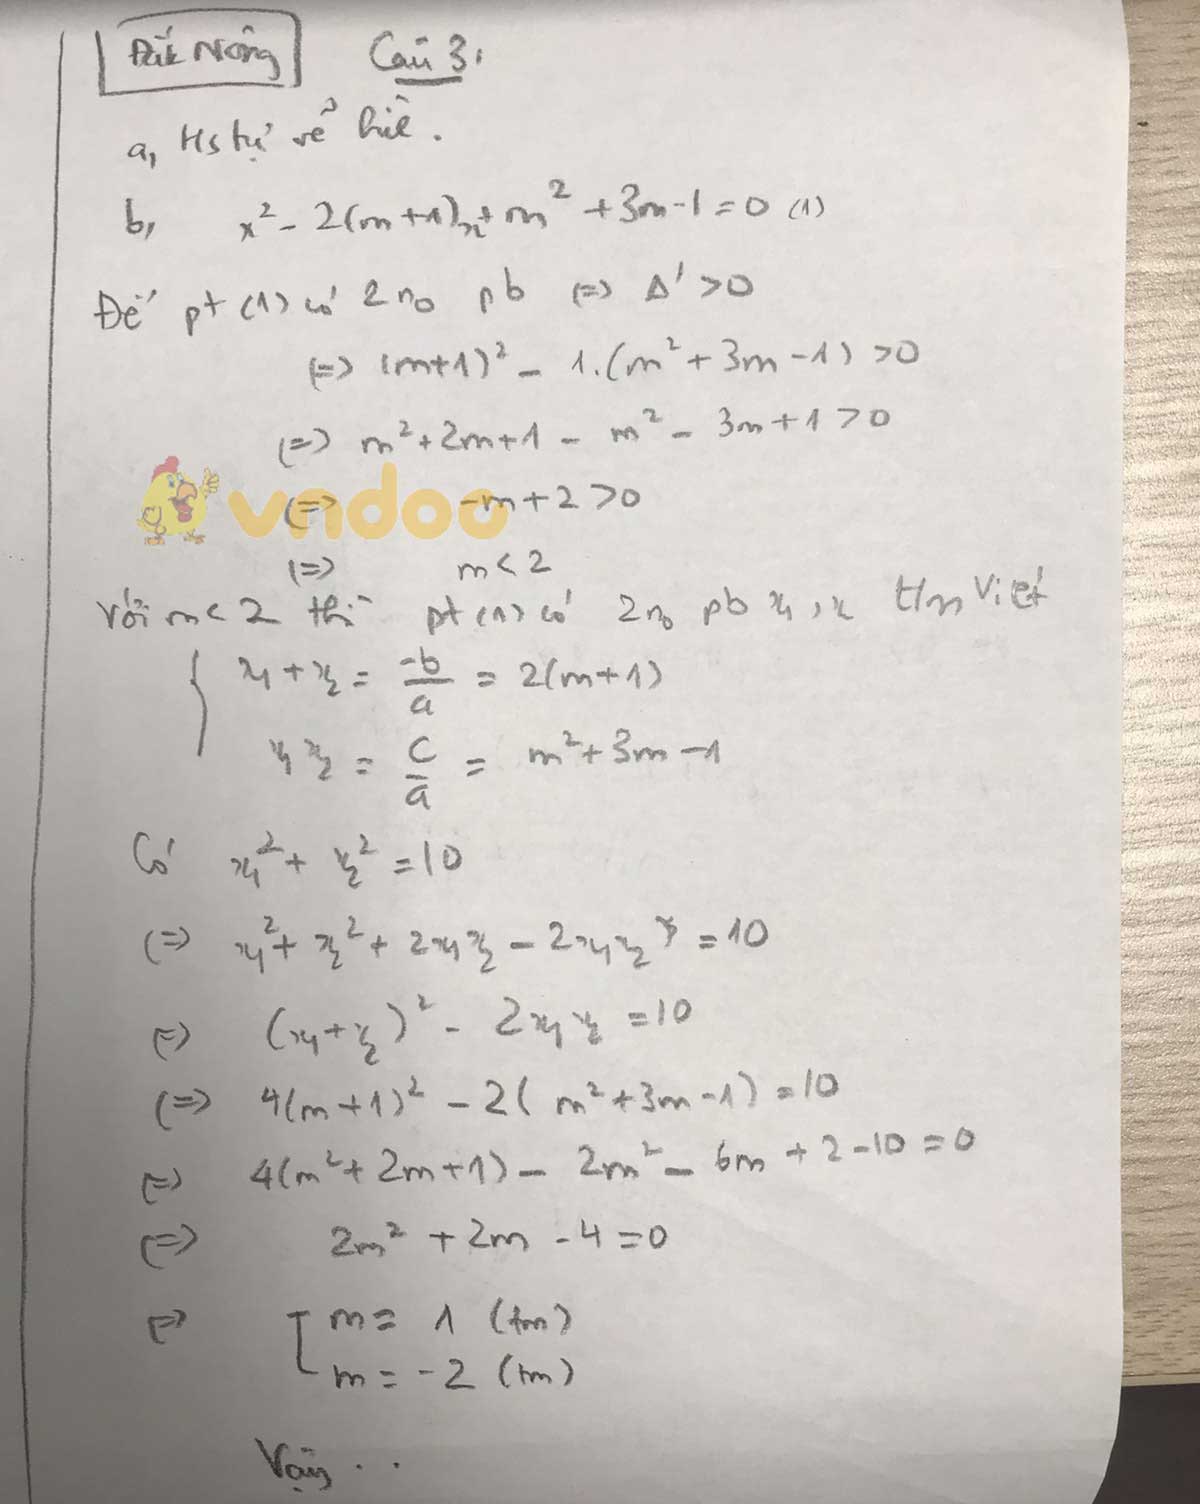 Đắk Nông Câu 3:
a, Hs tự vẽ hình.
b, x² - 2(m+1)x + m² + 3m - 1 = 0 (1)
Để pt (1) có 2 no pb (=) Δ' > 0
(=) (m+1)² - 1.(m² + 3m - 1) > 0
(=) m² + 2m + 1 - m² - 3m + 1 > 0
(=) -m + 2 > 0
vndoo
(=) m < 2
Với m < 2 thì pt (1) có 2 no pb x₁, x t/m Viet
{ x₁ + x₂ = -b/a = 2(m+1)
x₁x₂ = c/a = m² + 3m - 1
Có x₁² + x₂² = 10
(=) x₁² + x₂² + 2x₁x₂ - 2x₁x₂ = 10
(=) (x₁ + x₂)² - 2x₁x₂ = 10
(=) 4(m+1)² - 2(m² + 3m - 1) = 10
(=) 4(m² + 2m + 1) - 2m² - 6m + 2 - 10 = 0
(=) 2m² + 2m - 4 = 0
(=) [ m = 1 (tm)
m = -2 (tm)
Vậy ..